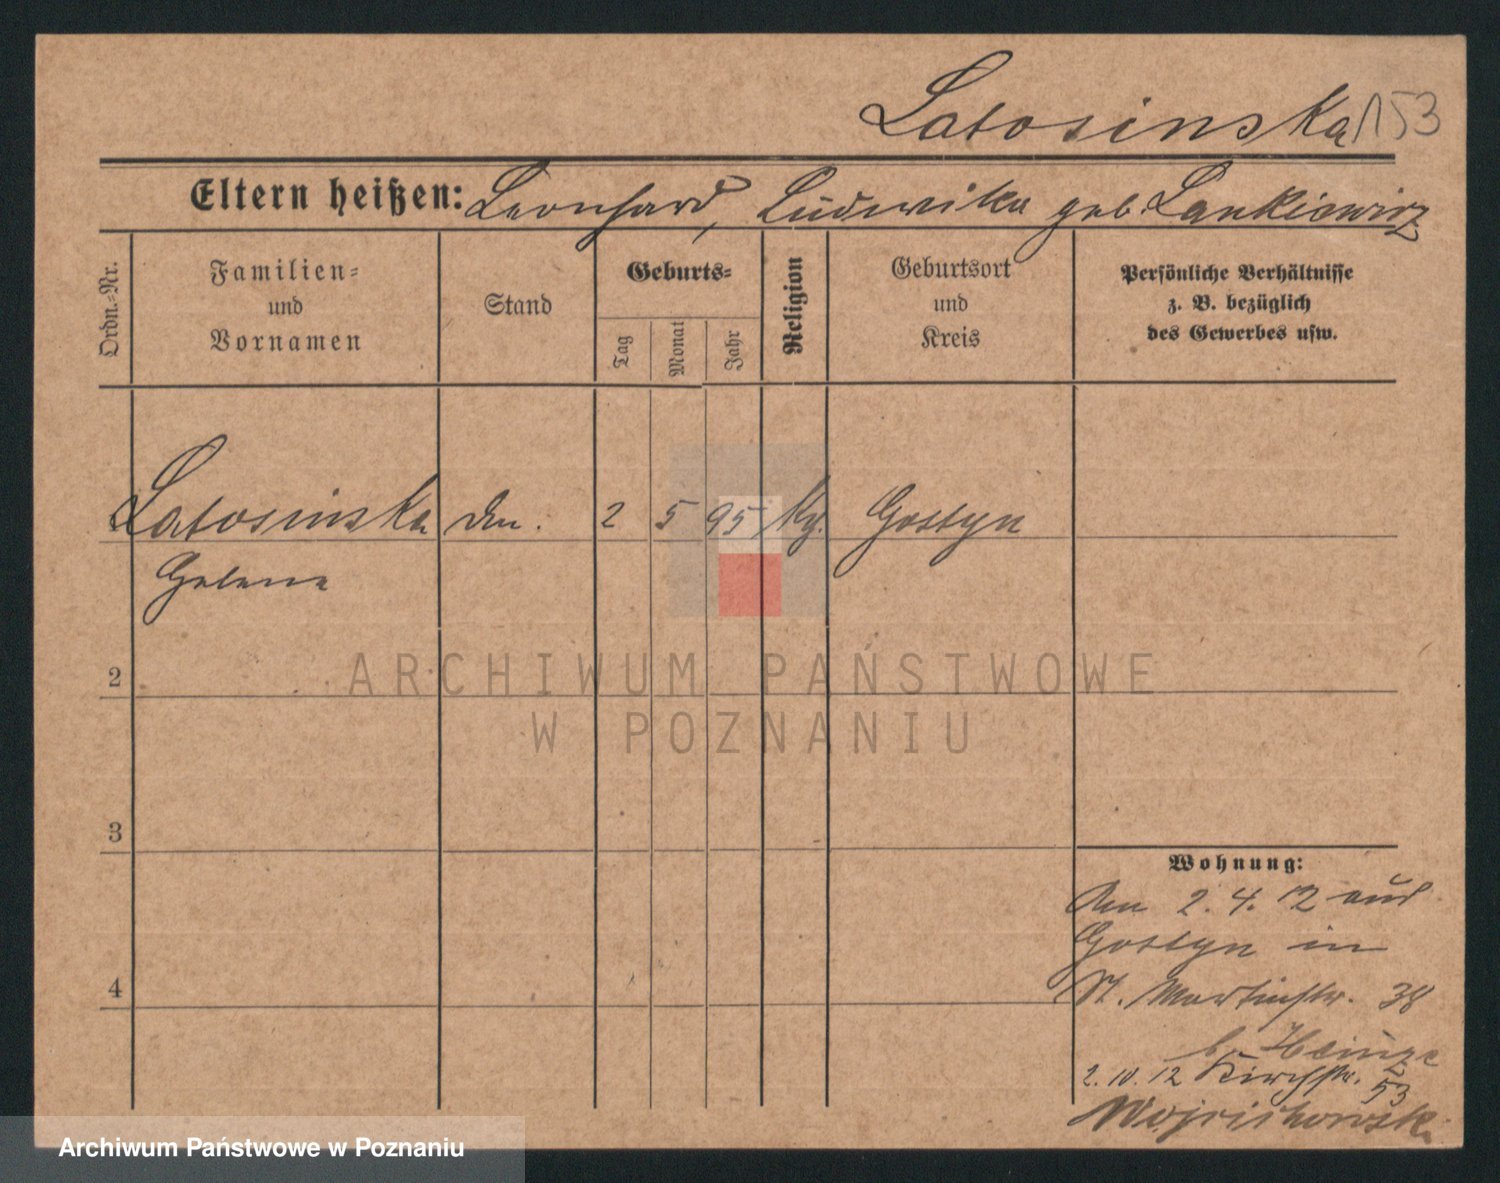 Latosinska 153
Eltern heißen: Leonhard, Ludwika geb. Lankiewicz
Ordn.-Nr.
Familien-
und
Vornamen
Stand
Geburts-
Tag
Monat
Jahr
Religion
Geburtsort
und
Kreis
Persönliche Verhältnisse
z. B. bezüglich
des Gewerbes usw.
1 Latosinska 2 5 95 Gostyn
Helene
2
3
4
Wohnung:
Am 2. 4. 12 aus
Gostyn in
St. Martinstr. 38
b. Heinze
2. 10. 12 Kirchstr. 53
ARCHIWUM PAŃSTWOWE
W POZNANIU
Archiwum Państwowe w Poznaniu